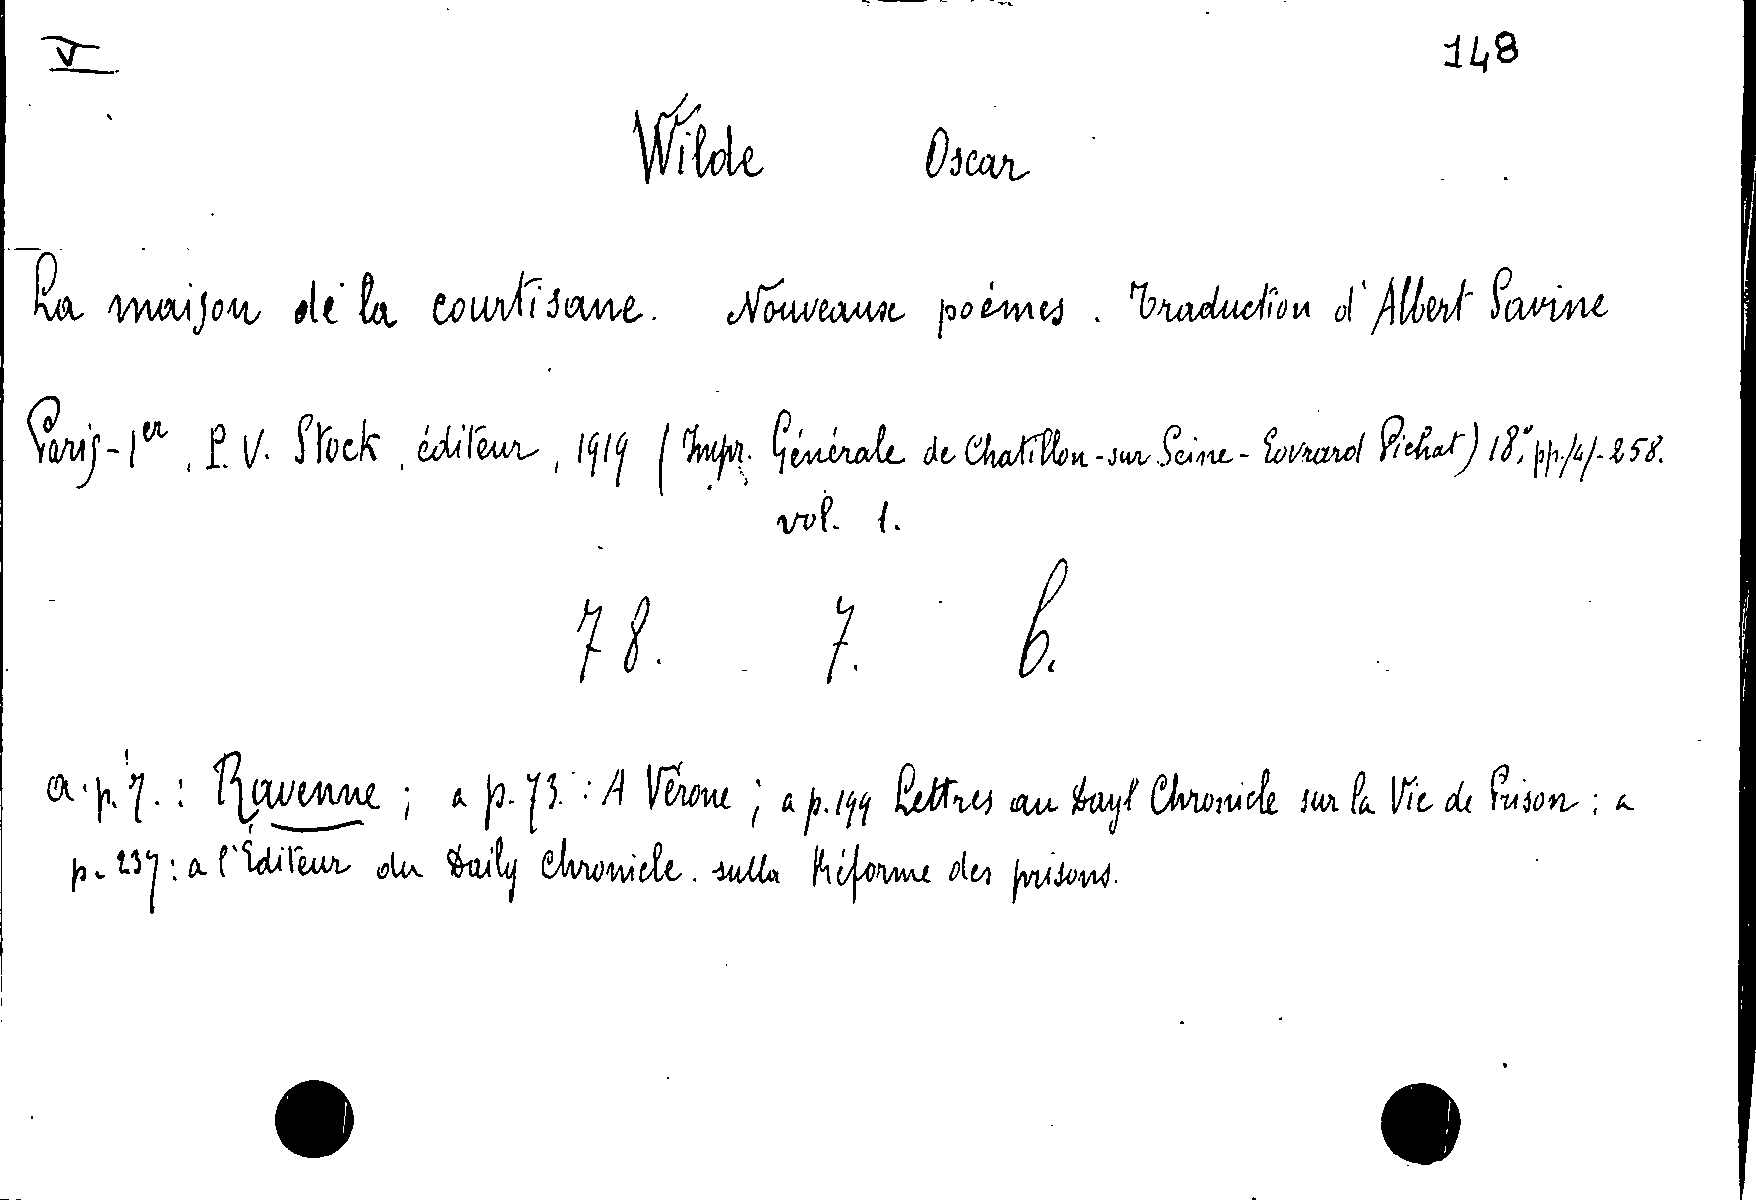 V 148
Wilde Oscar
La maison de la courtisane. Nouveaux poémes. Traduction d'Albert Savine
Paris-1er, P. V. Stock, éditeur, 1919 (Impr. Générale de Chatillon-sur-Seine-Euvrard Pichat) 18°, pp./4/-258.
vol. 1.
78. 7. 6.
a. p. 7. : Ravenne ; a p. 73. : A Vérone ; a p. 199 Lettres au Dayl Chronicle sur la Vie de Prison : a
p. 237 : a l'Éditeur du Daily Chronicle. sulla Réforme des prisons.